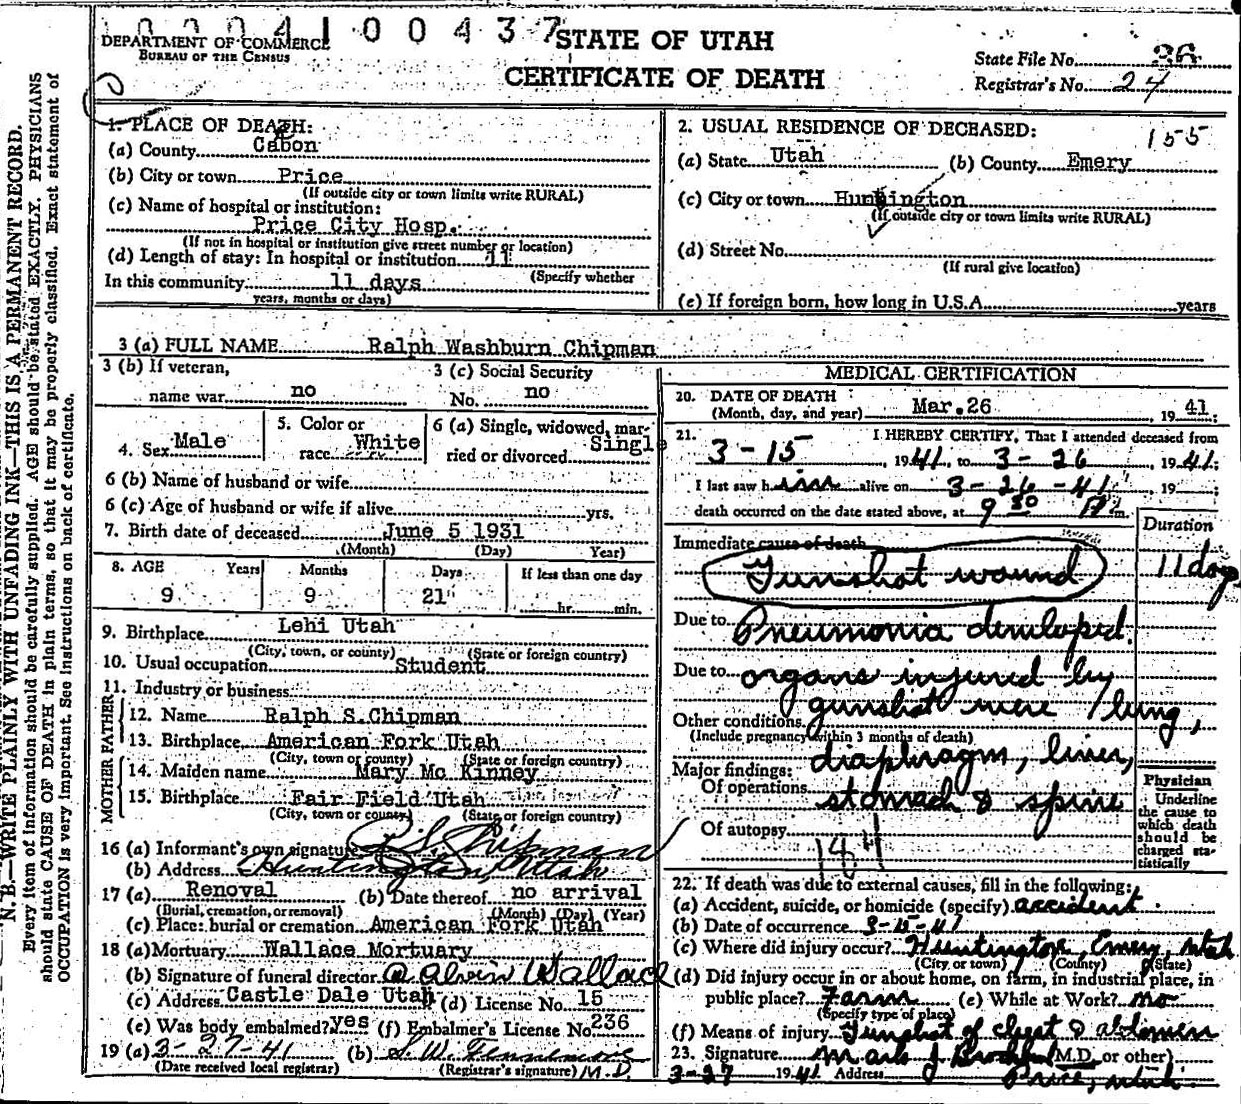 0 0 0 4 1 0 0 4 3 7
DEPARTMENT OF COMMERCE
BUREAU OF THE CENSUS
STATE OF UTAH
CERTIFICATE OF DEATH
State File No. 26
Registrar's No. 24
N. B.—WRITE PLAINLY WITH UNFADING INK—THIS IS A PERMANENT RECORD.
Every item of information should be carefully supplied. AGE should be stated EXACTLY. PHYSICIANS
should state CAUSE OF DEATH in plain terms, so that it may be properly classified. Exact statement of
OCCUPATION is very important. See instructions on back of certificate.
1. PLACE OF DEATH:
(a) County Cabon
(b) City or town Price
(If outside city or town limits write RURAL)
(c) Name of hospital or institution:
Price City Hosp.
(If not in hospital or institution give street number or location)
(d) Length of stay: In hospital or institution 11
(Specify whether
In this community 11 days
years, months or days)
2. USUAL RESIDENCE OF DECEASED:
155
(a) State Utah (b) County Emery
(c) City or town Huntington
(If outside city or town limits write RURAL)
(d) Street No.
(If rural give location)
(e) If foreign born, how long in U.S.A. years
3 (a) FULL NAME Ralph Washburn Chipman
3 (b) If veteran,
name war no
3 (c) Social Security
No. no
4. Sex Male
5. Color or
race White
6 (a) Single, widowed, mar-
ried or divorced Single
6 (b) Name of husband or wife
6 (c) Age of husband or wife if alive yrs.
7. Birth date of deceased June 5 1931
(Month) (Day) Year)
8. AGE Years Months Days If less than one day
9 9 21 hr. min.
9. Birthplace Lehi Utah
(City, town, or county) (State or foreign country)
10. Usual occupation Student
11. Industry or business
FATHER
12. Name Ralph S. Chipman
13. Birthplace American Fork Utah
(City, town or county) (State or foreign country)
MOTHER
14. Maiden name Mary Mc Kinney
15. Birthplace Fair Field Utah
(City, town or county) (State or foreign country)
16 (a) Informant's own signature R. S. Chipman
(b) Address Huntington Utah
17 (a) Renoval (b) Date thereof no arrival
(Burial, cremation, or removal) (Month) (Day) (Year)
(c) Place: burial or cremation American Fork Utah
18 (a) Mortuary Wallace Mortuary
(b) Signature of funeral director A. Alvin Wallace
(c) Address Castle Dale Utah (d) License No. 15
(e) Was body embalmed? yes (f) Embalmer's License No 236
19 (a) 3-27-41 (b) M.D.
(Date received local registrar) (Registrar's signature)
MEDICAL CERTIFICATION
20. DATE OF DEATH
(Month, day, and year) Mar. 26 1941:
21. I HEREBY CERTIFY, That I attended deceased from
3-15, 1941, to 3-26, 1941;
I last saw him alive on 3-26-41, 19 ;
death occurred on the date stated above, at 9 30 P m.
Duration
Immediate cause of death
Gunshot wound 11 days
Due to Pneumonia developed.
Due to organs injured by
gunshot were lung,
Other conditions
(Include pregnancy within 3 months of death)
diaphragm, liver,
Major findings:
Of operations stomach & spine
Of autopsy
184
Physician
Underline
the cause to
which death
should be
charged sta-
tistically
22. If death was due to external causes, fill in the following:
(a) Accident, suicide, or homicide (specify) accident
(b) Date of occurrence 3-15-41
(c) Where did injury occur? Huntington, Emery, Utah
(City or town) (County) (State)
(d) Did injury occur in or about home, on farm, in industrial place, in
public place? Farm (e) While at Work? no
(Specify type of place)
(f) Means of injury Gunshot of chest & abdomen
23. Signature Mark J. (M.D. or other)
3-27 1941 Address Price, Utah